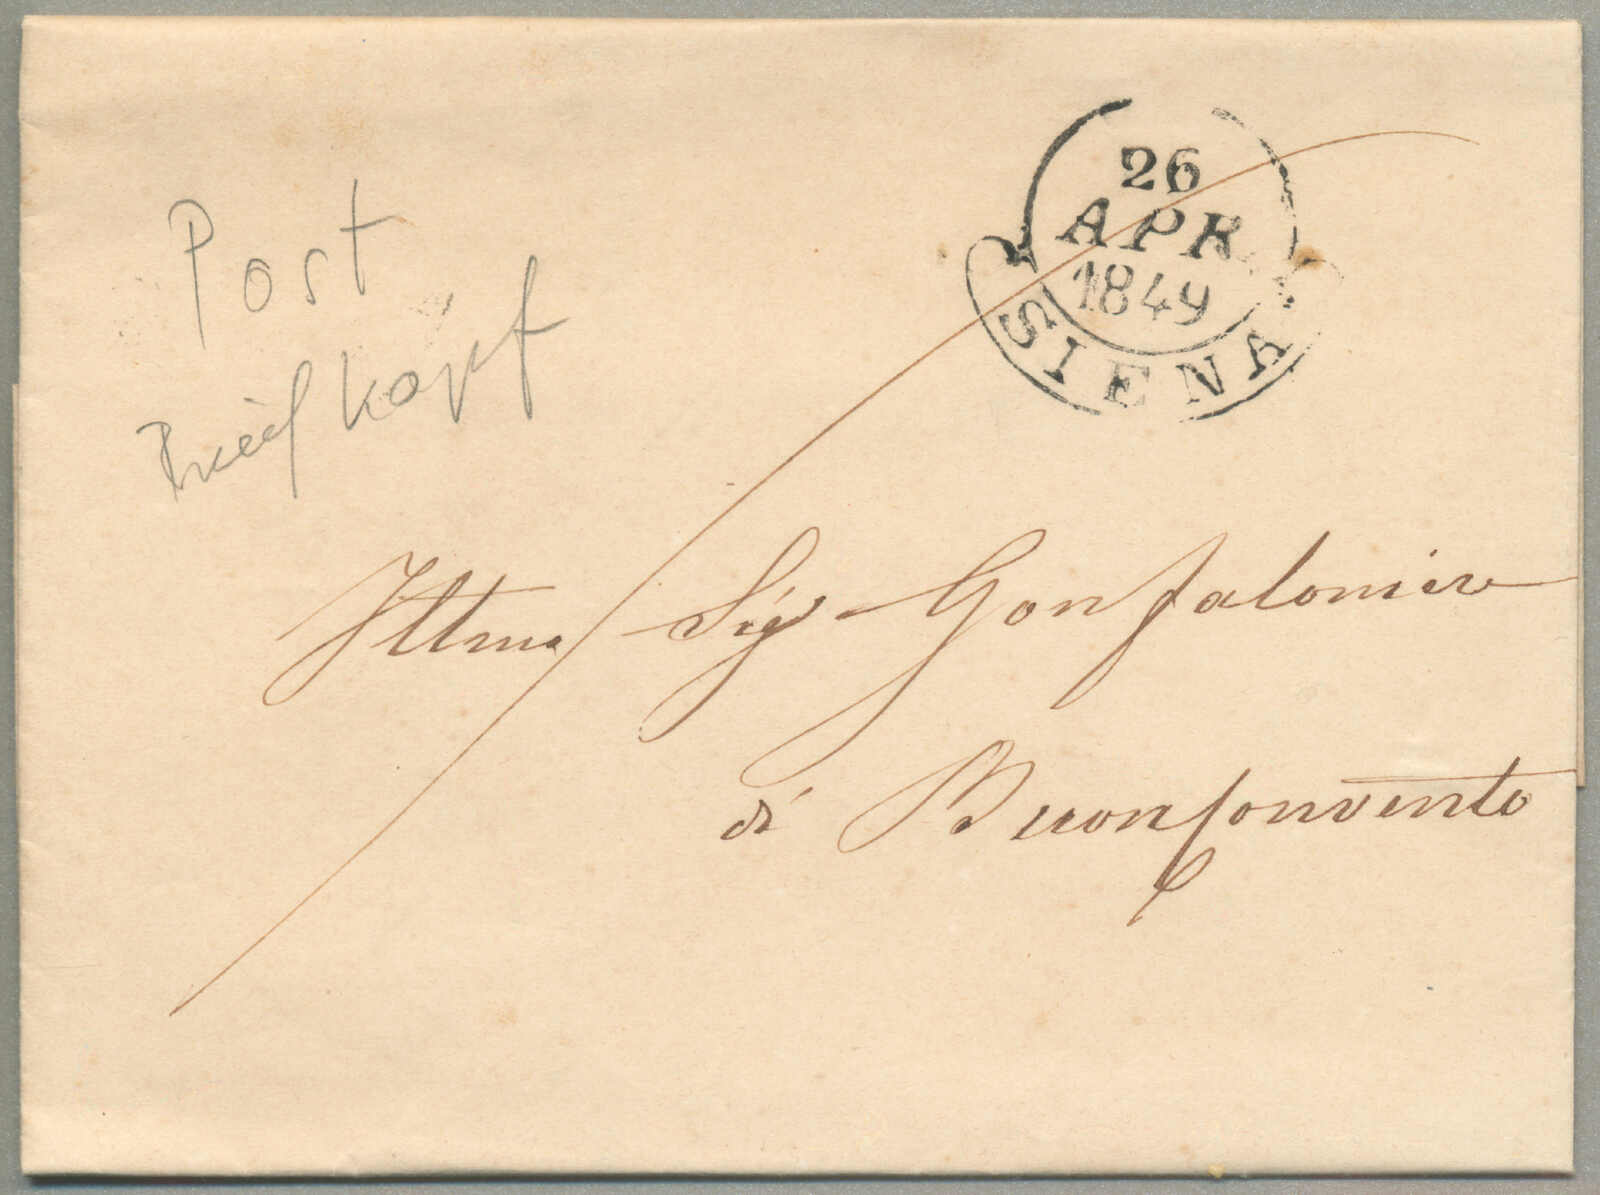 26
APR.
1849
SIENA
Post
Briefkopf
Illmo Sigr Gonfaloniere
di Buonconvento